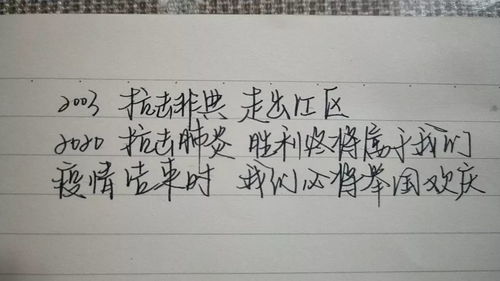 2003 抗击非典 走出江区
2020 抗击肺炎 胜利终将属于我们
疫情结束时 我们必将举国欢庆